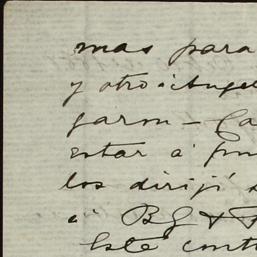 mas para
y otro á Angel
garon - Ca
estar á pun
los dirijí
á BG &
Este cont